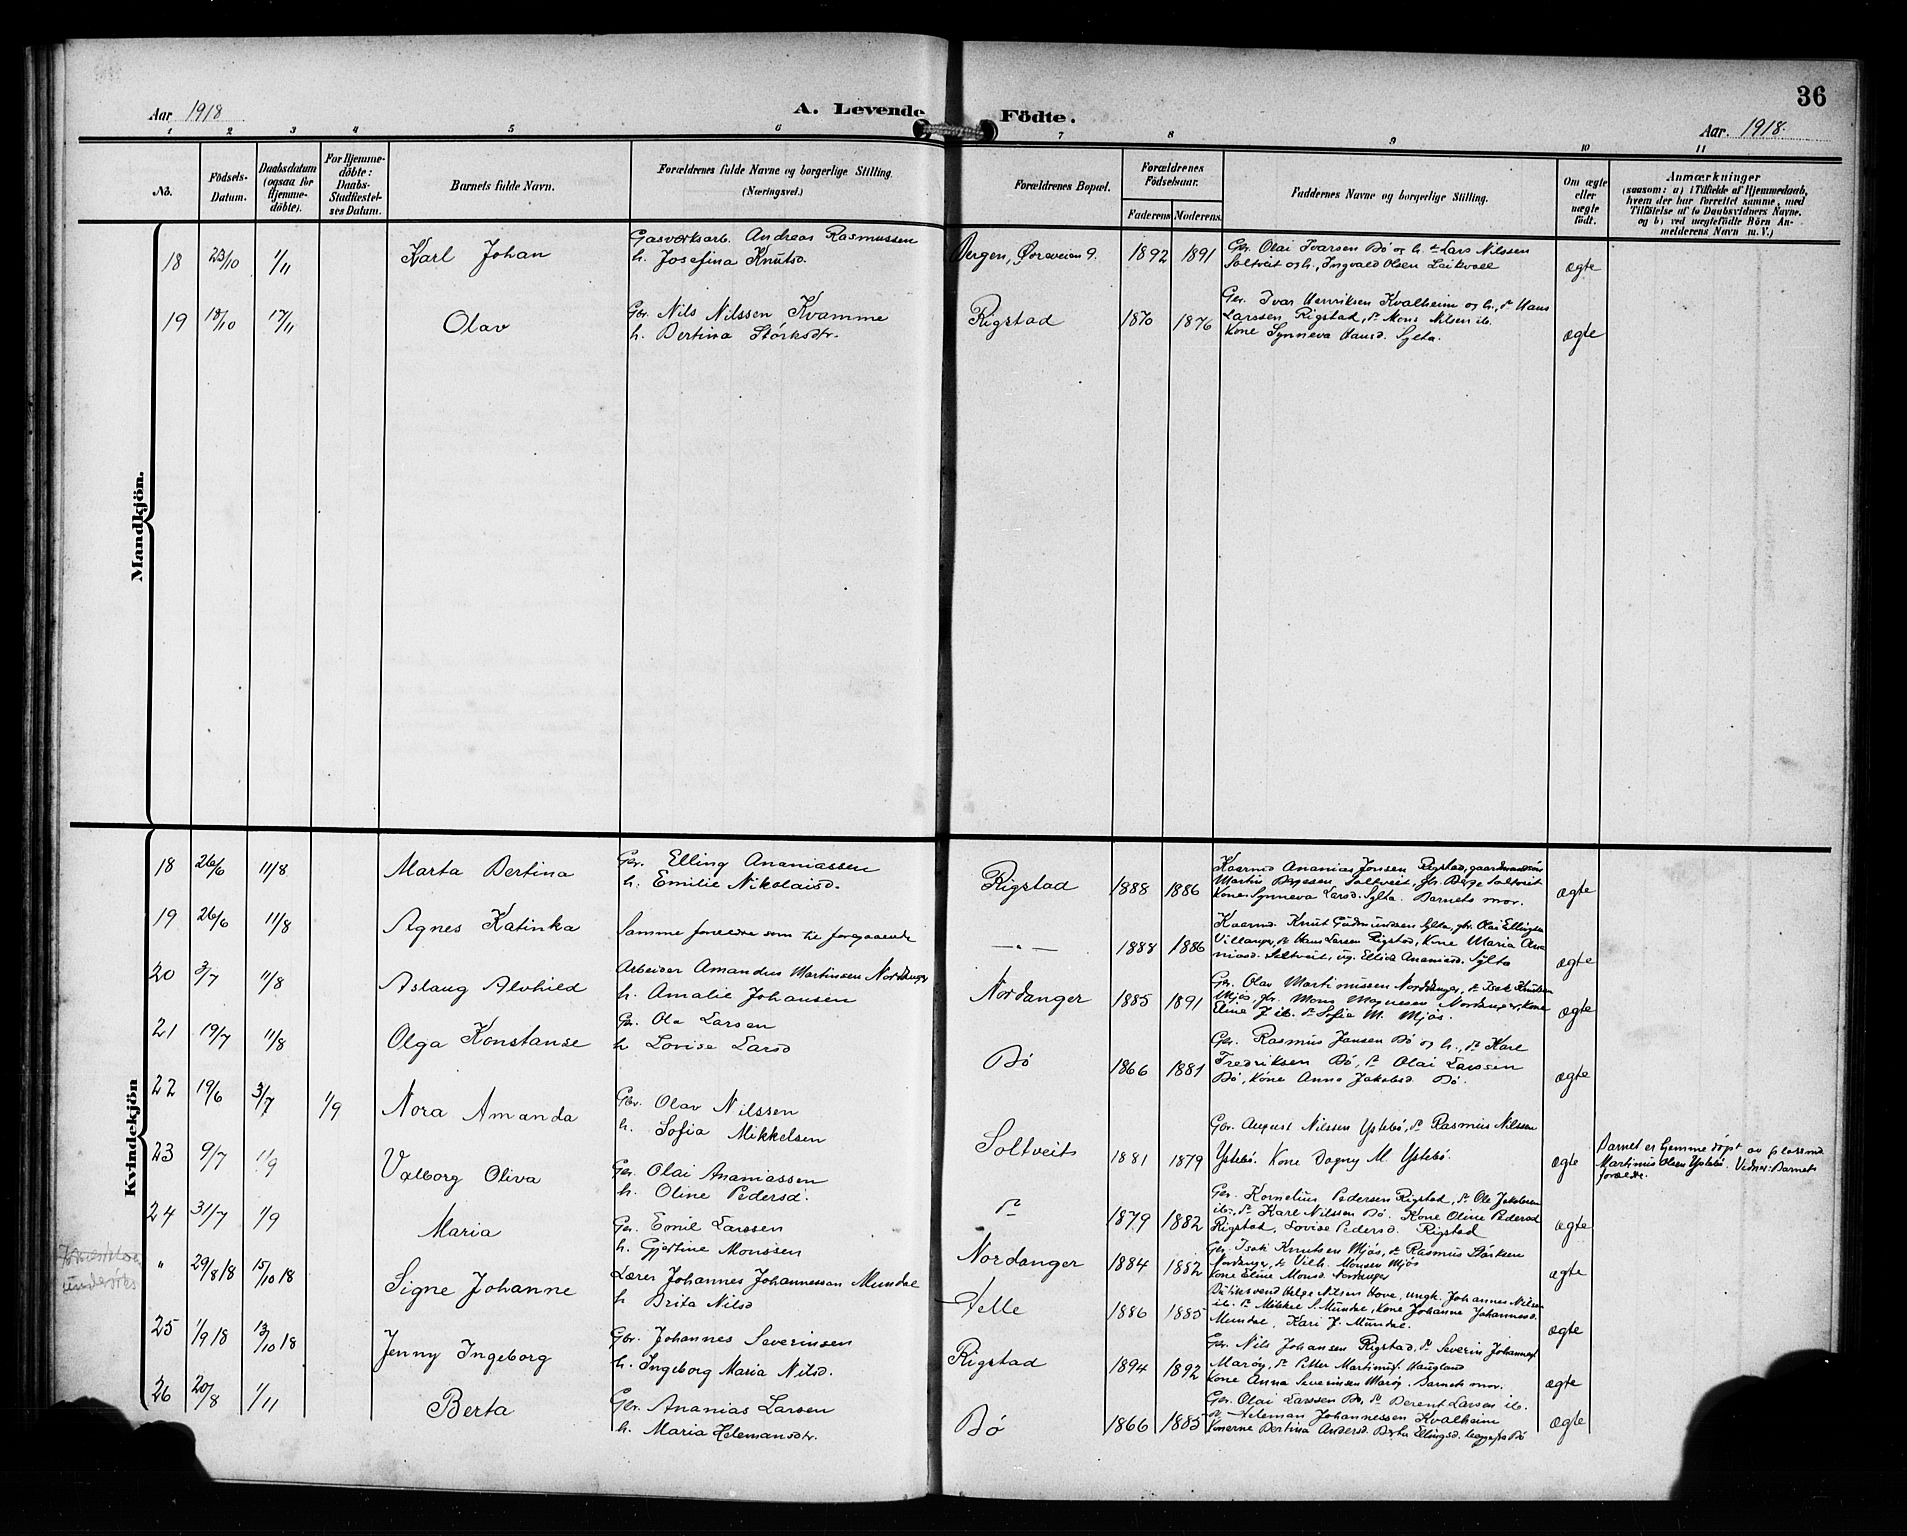 36
Aar 1918
A. Levende Födte.
Aar. 1918.
1 2 3 4 5 6 7 8 9 10 11
No.
Födsels-Datum.
Daabsdatum (ogsaa for Hjemme-döbte).
For Hjemme-döbte: Daabs-Stadfæstel-ses Datum.
Barnets fulde Navn.
Forældrenes fulde Navne og borgerlige Stilling. (Næringsvei.)
Forældrenes Bopæl.
Forældrenes Födselsaar.
Faderens Moderens
Faddernes Navne og borgerlige Stilling.
Om ægte eller uægte født.
Anmærkninger
(saasom: a) i Tilfælde af Hjemmedaab,
hvem der har forrettet samme, med
Tilføielse af to Daabsvidners Navne,
og b) ved uægtefødte Börn An-
melderens Navn m. V.)
Mandkjön.
18 23/10 1/11 Karl Johan Gasverksarb. Andreas Rasmussen
h. Josefina Knutsd. Bergen, Øreveien 9. 1892 1891 Gbr. Olai Ivarsen Bö og h. do Lars Nilssen
Soltveit og h., Ingvald Olsen Leikvoll ægte
19 18/10 17/11 Olav Gbr. Nils Nilssen Kvamme
h. Bertina Störksdtr. Rigstad 1870 1876 Gbr. Ivar Henriksen Kvalheim og h., do Hans
Larssen Rigstad, do Mons Nilsen ib.
Kone Synneva Hansd. Sylta. ægte
Kvindekjön
18 26/6 11/8 Marta Bertina Gbr. Elling Ananiassen
h. Emilie Nikolaisd. Rigstad 1888 1886 Kaarmd Ananias Jonsen Rigstad, gaardmandssön
Martin Børesen Soltveit, gbr. Børge Soltveit
Kone Synneva Larsd. Sylta. Barnets mor. ægte
19 26/6 11/8 Agnes Katinka Samme foreldre som til foregaaende —"— 1888 1886 Kaarmd. Knut Gudmundsen Sylta, gbr. Olai Ellingsen
Villanger, do Hans Larsen Rigstad, Kone Maria Ana
niasd. Soltveit, ug. Ellida Ananiasd. Sylta ægte
20 3/7 11/8 Aslaug Alvhild Arbeider Amandus Martinssen Nordanger
h. Amalie Johansen Nordanger 1885 1891 Gbr. Olav Martinussen Nordanger, do Isak Knutsen
Mjös, gbr. Mons Magnesen Nordanger, Kone
Eline J. ib. do Sofie M. Mjös. ægte
21 19/7 11/8 Olga Konstanse Gbr. Ole Larsen
h Lovise Larsd Bö 1866 1881 Gbr. Rasmus Jansen Bö og h., do Karl
Fredriksen Bö, do Olai Larssen
Bö, Kone Anna Jakobsd. Bö. ægte
22 19/6 3/7 1/9 Nora Amanda Gbr. Olav Nilssen
h. Sofia Mikkelsen Soltveit 1881 1879 Gbr. August Nilssen Ystebö, do Rasmus Nilssen
Ystebö. Kone Dagny M. Ystebö. ægte Barnet er hjemme döpt av
Martinus Olsen Ystebö. Vidner: Barnets
foreldre.
23 9/7 1/9 Valborg Oliva Gbr. Olai Ananiassen
h. Oline Pedersd. do 1879 1882 Gbr. Kornelius Pedersen Rigstad, do Ole Jakobsen
ib., do Karl Nilssen Bö. Kone Oline Pedersd
Rigstad, Lovise Pedersd. Rigstad ægte
24 31/7 1/9 Maria Gbr. Emil Larssen
h. Gjertine Monssen Nordanger 1884 1882 Gbr. Isak Knutsen Mjös, do Rasmus Störksen
Nordanger, do Vilh. Monsen Mjös
Kone Eline Monsd. Nordanger ægte
" 29/8 18 15/10 18 Signe Johanne Lærer Johannes Johannesson Mundal
h Brita Nilsd Telle 1886 1885 Butiksvend Helge Nilsen Hove, ungk. Johannes Nilsen
ib. do Mikkel S. Mundal, Kone Johanne Johannesd.
Mundal, Kari J. Mundal. ægte
25 1/9 18 13/10 18 Jenny Ingeborg Gbr. Johannes Severinsen
h. Ingeborg Maria Nilsd. Rigstad 1894 1892 Gbr. Nils Johansen Rigstad, do Severin Johannes.
Maröy, do Petter Martinus. Haugland
Kone Anna Severinsen Maröy. Barnets mor. ægte
26 20/8 1/11 Berta Gbr. Ananias Larsen
h. Maria Helemansdtr. Bö 1866 1885 Gbr. Olai Larssen Bö, do Berent Larsen ib.
do Teleman Johannessen Kvalheim
Konerne Bertina Andersd. Berta Ellingsd. begge fra Bö ægte